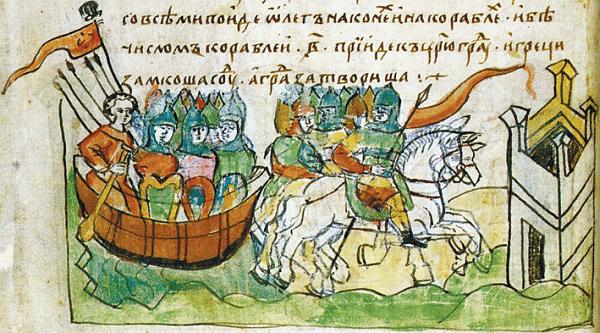 совсѣми поиде ѡлегъ на конеⷯ и на кораблеⷯ · и бѣ
числомъ кораблеи · в҃ · прїиде къ цр҃юграⷣ · и греци
замкоша соуⷣ · а граⷣ затвориша :·